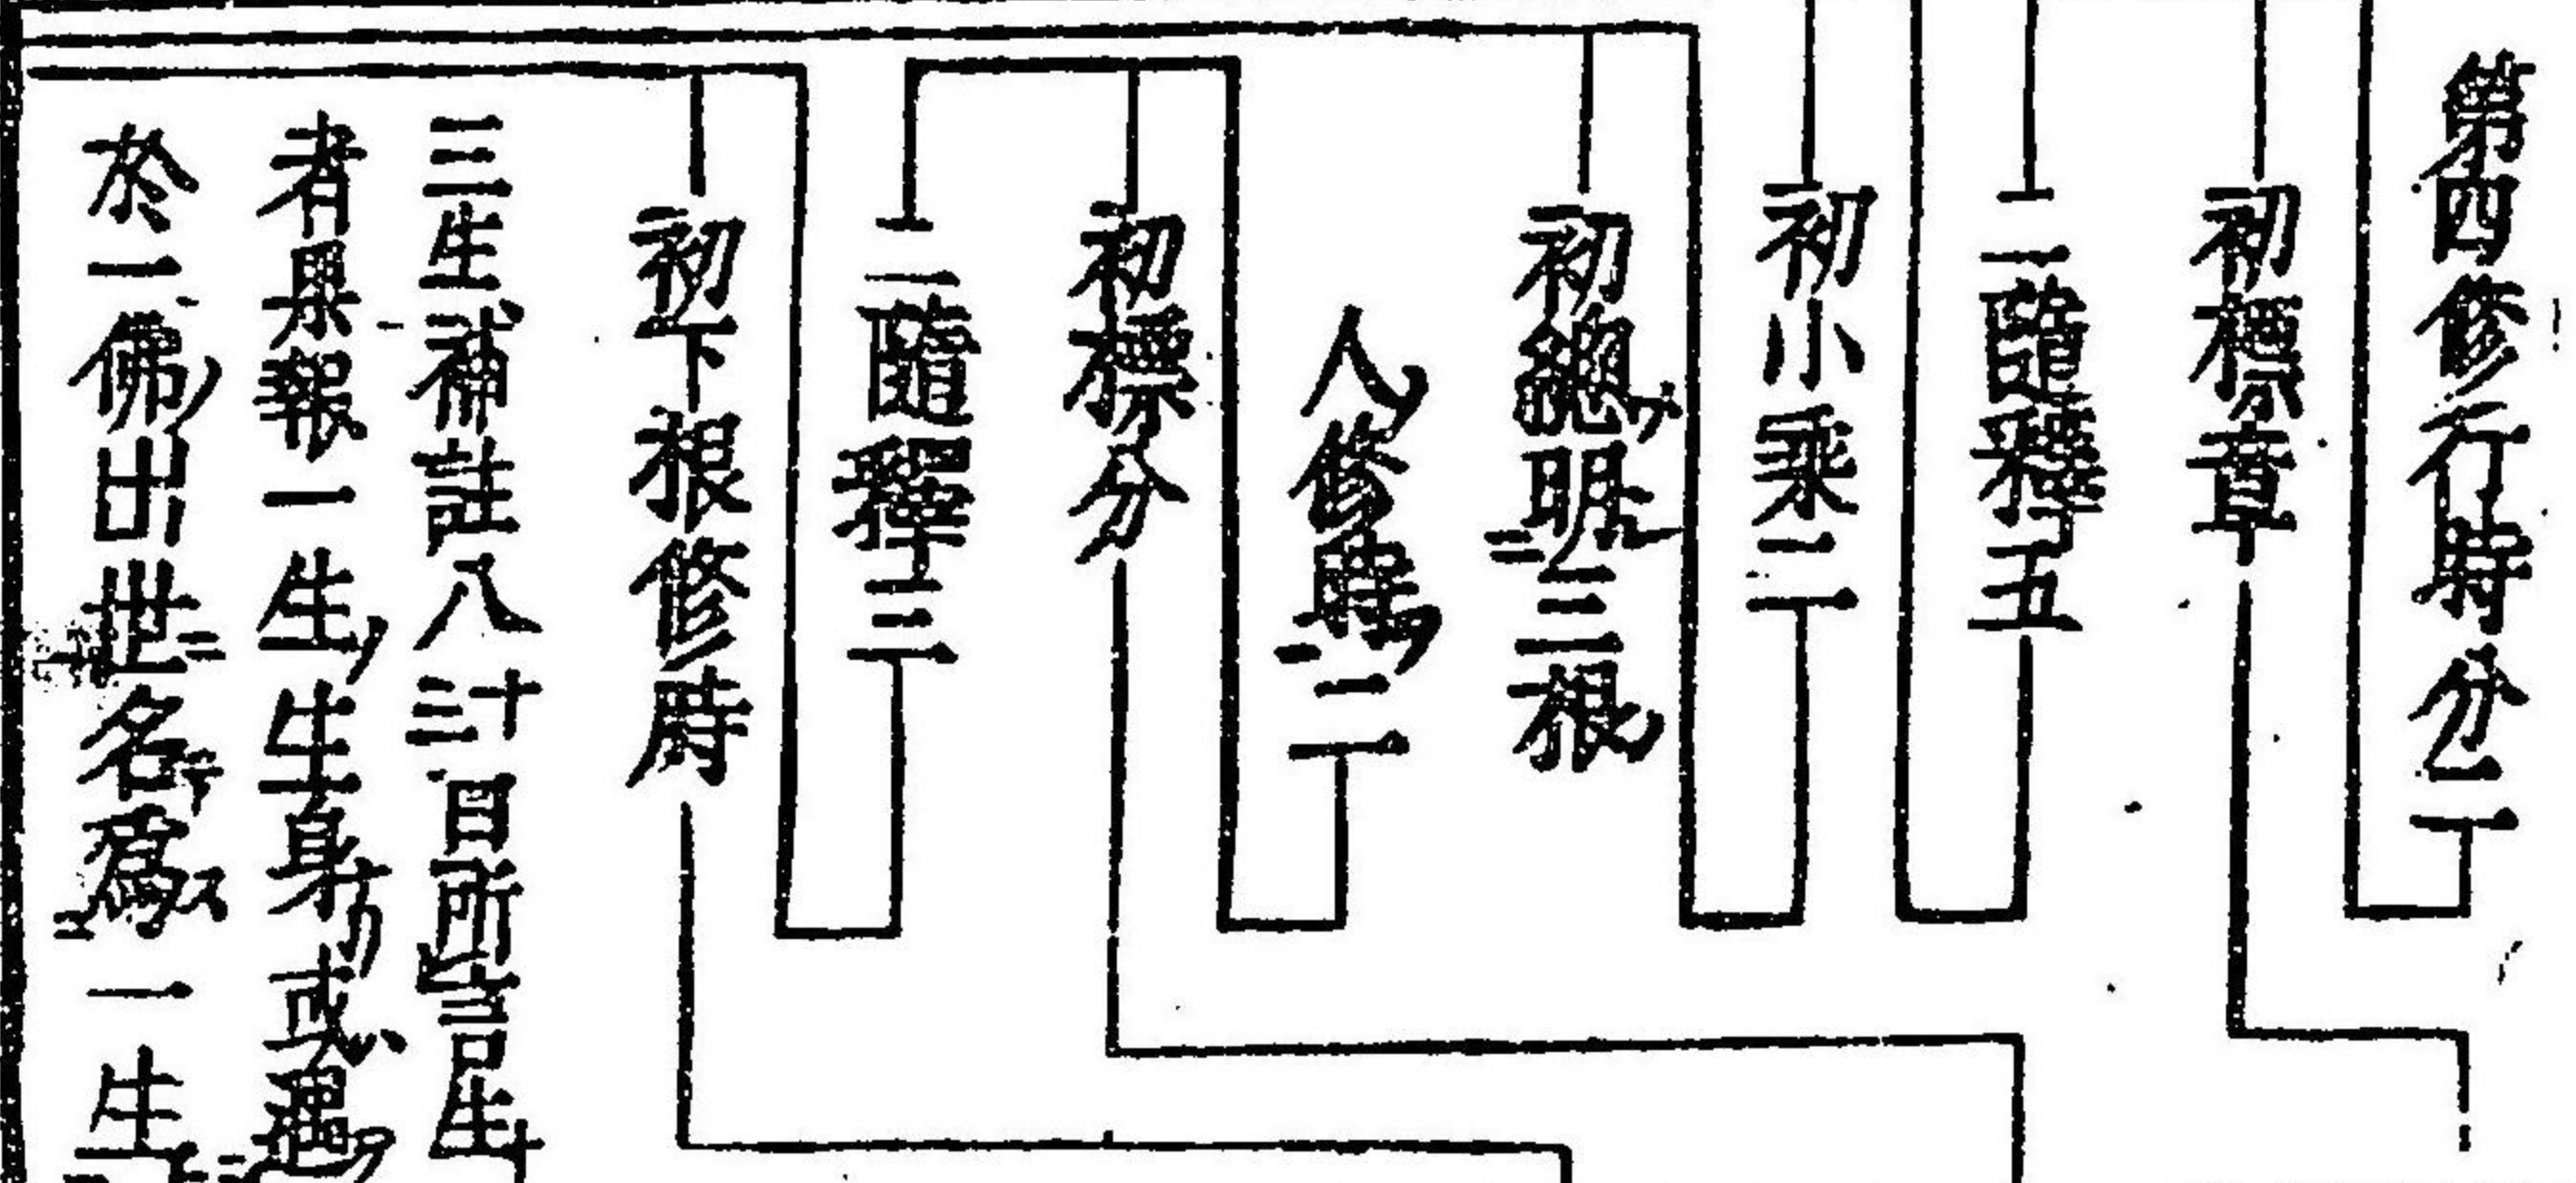 第四修行時分二
初標章
二隨釋五
初小乘二
初總明三根
人修時二
初標分
二隨釋三
初下根修時
三生補註八十三日所言生
者果報一生生身或遇
於一佛出世名爲一生